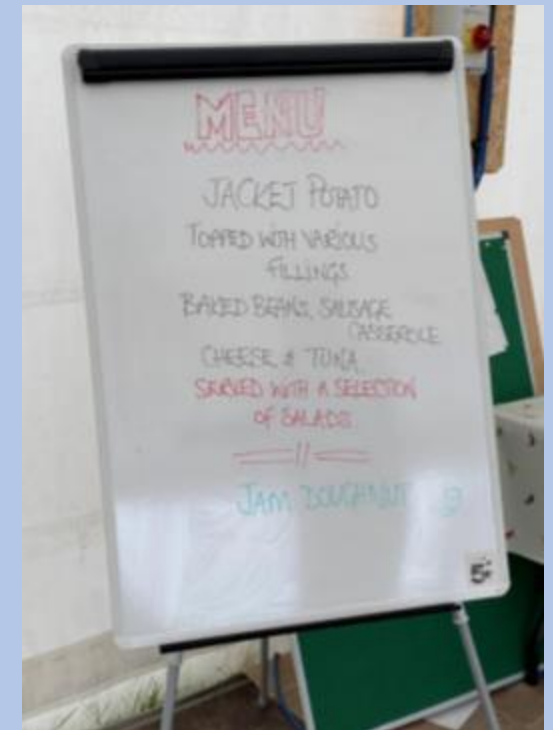 MENU
JACKET POTATO
TOPPED WITH VARIOUS
FILLINGS
BAKED BEANS, SAUSAGE
CASSEROLE
CHEESE & TUNA
SERVED WITH A SELECTION
OF SALADS
JAM DOUGHNUT
5